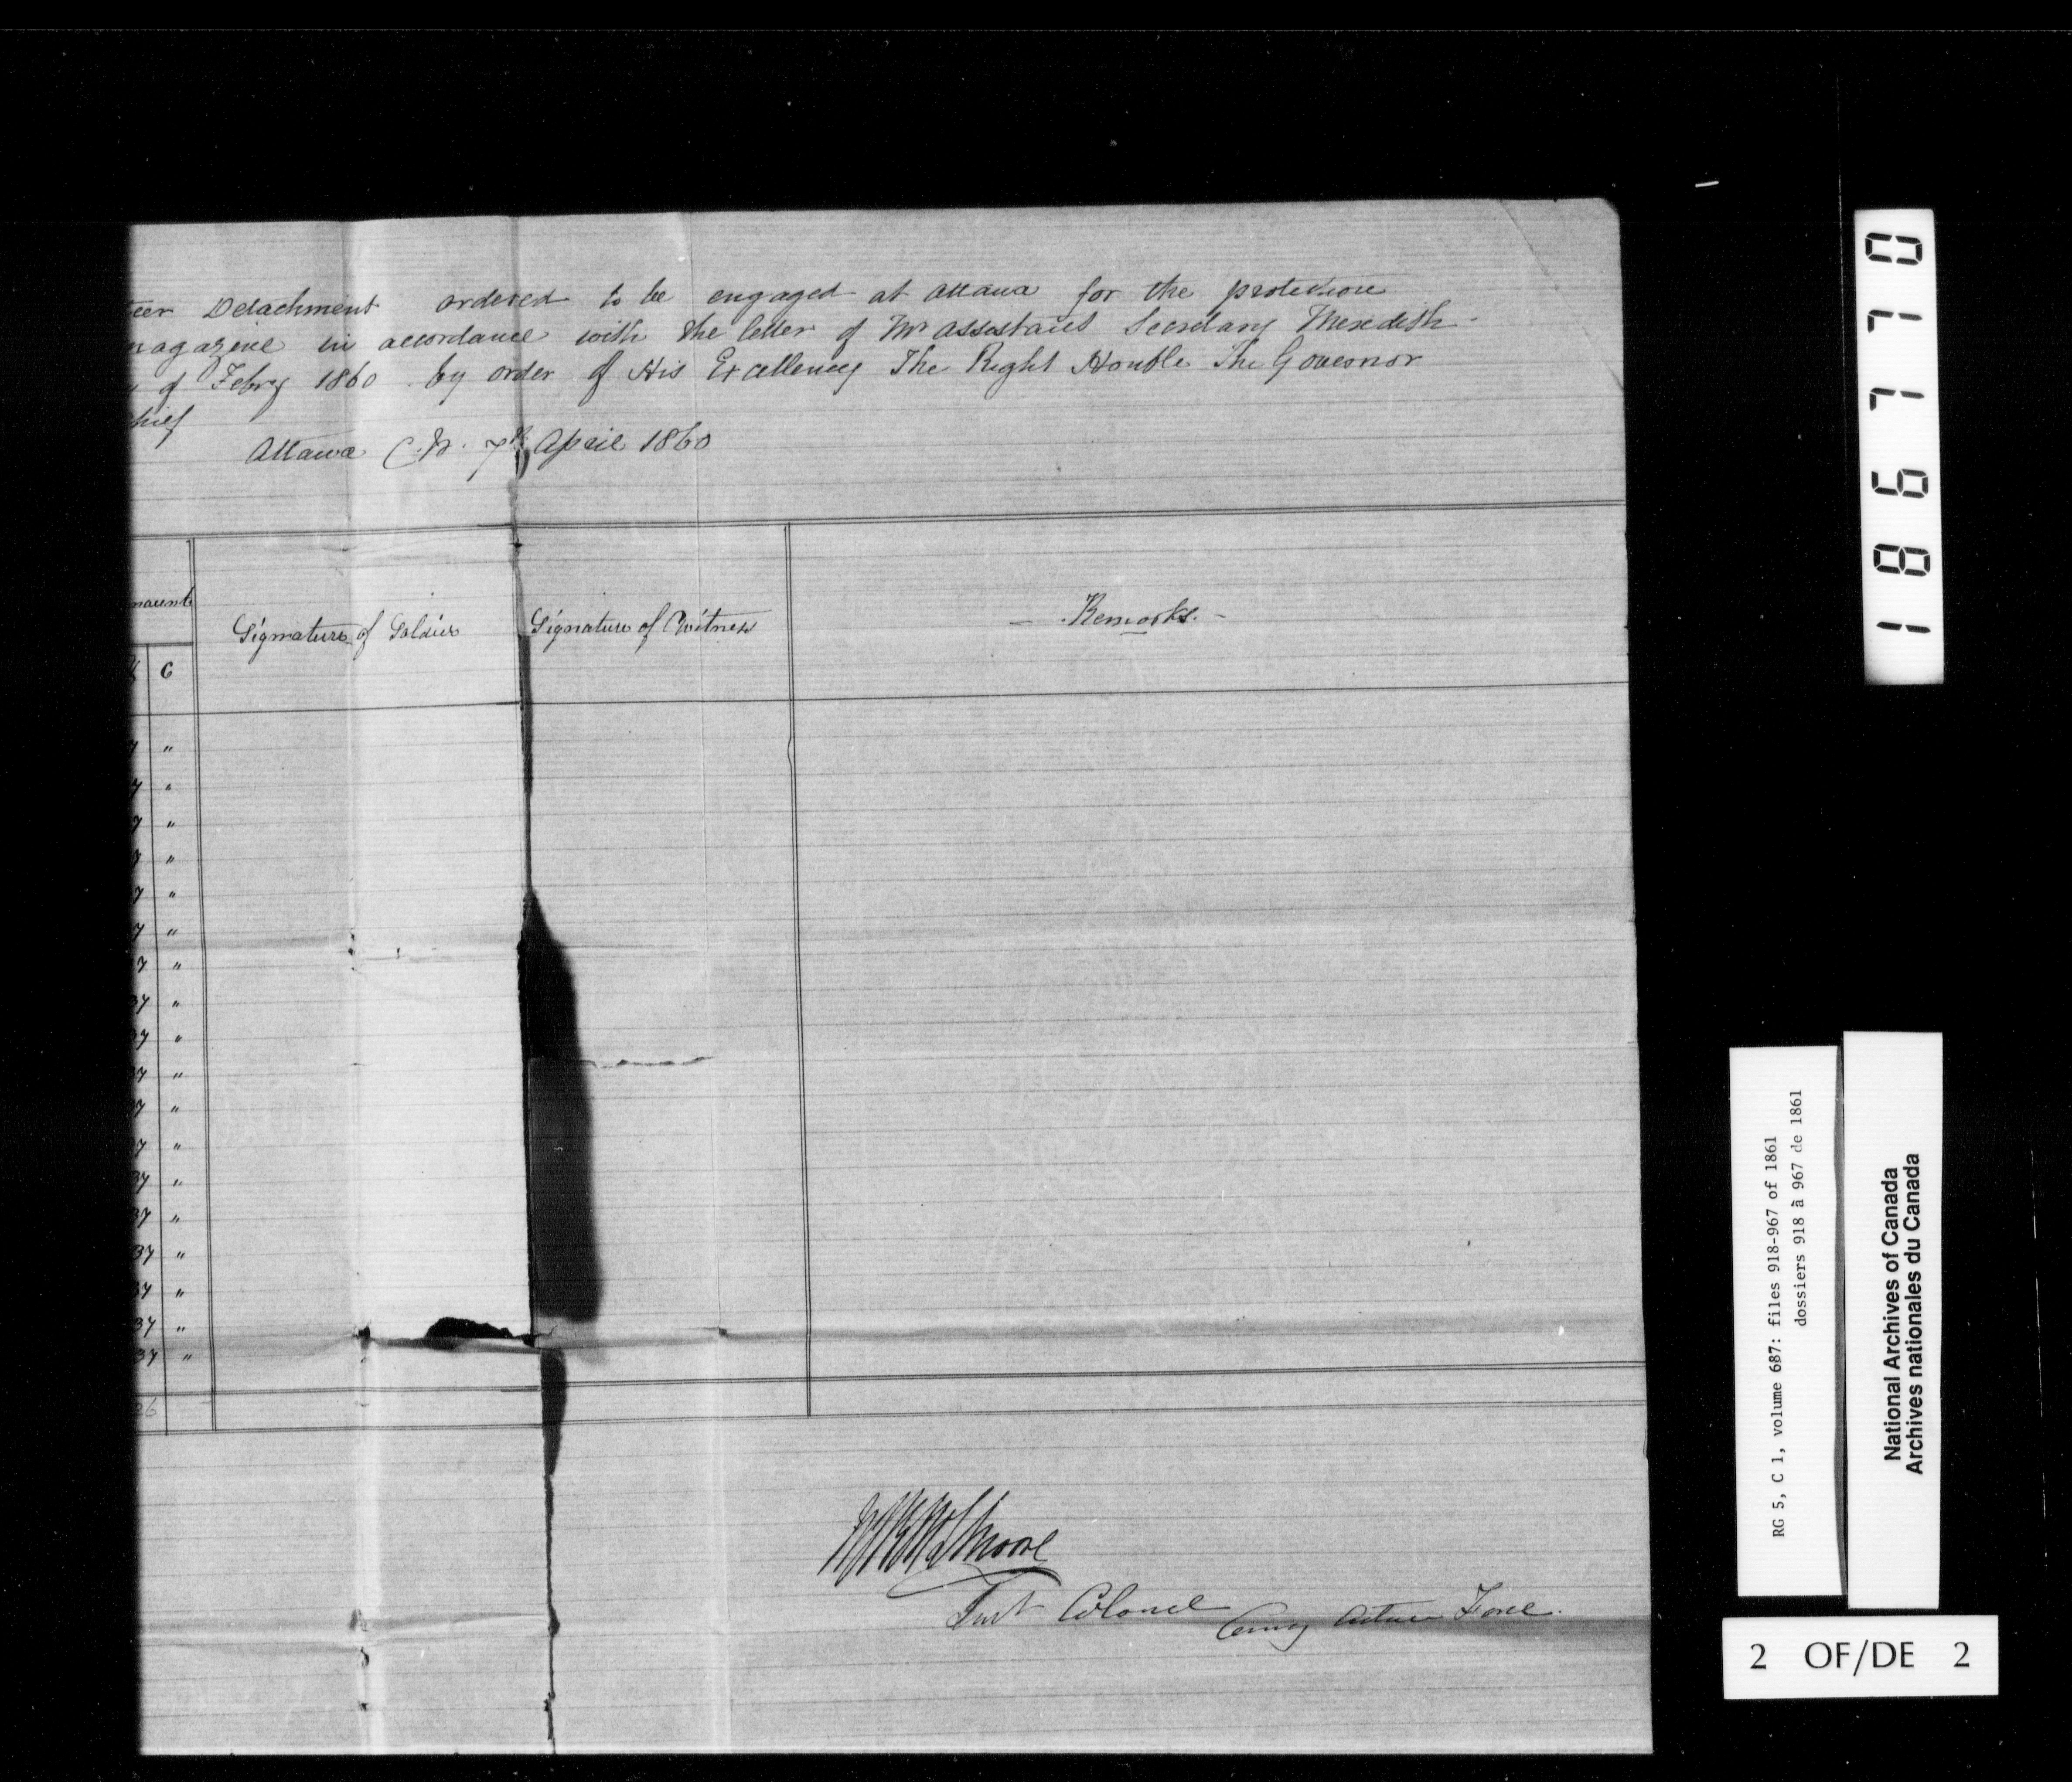 teer Detachment ordered to be engaged at Ottawa for the protection
magazine in accordance with the letter of Mr Assistant Secretary Meredith
of Febry 1860 by order of His Excellency The Right Honble The Governor
hief
Ottawa C.W. 7th April 1860
mount
Signature of Soldier
Signature of Witness
- Remarks. -
C
7 "
7 "
7 "
7 "
7 "
7 "
7 "
37 "
37 "
37 "
37 "
37 "
37 "
37 "
37 "
37 "
37 "
37 "
26
Moore
Lieut Colonel
Comg Active Force.
186770
RG 5, C 1, volume 687: files 918-967 of 1861
dossiers 918 à 967 de 1861
National Archives of Canada
Archives nationales du Canada
2 OF/DE 2